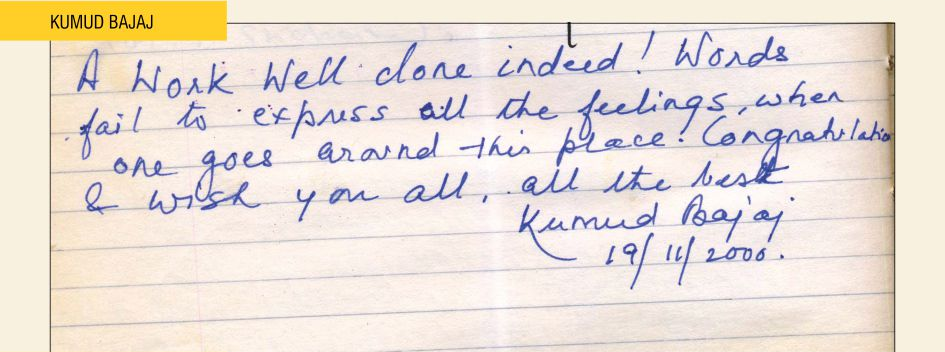 KUMUD BAJAJ
A Work Well done indeed! Words
fail to express all the feelings, when
one goes around this place! Congratulatio
& wish you all, all the best
Kumud Bajaj
19/11/2000.